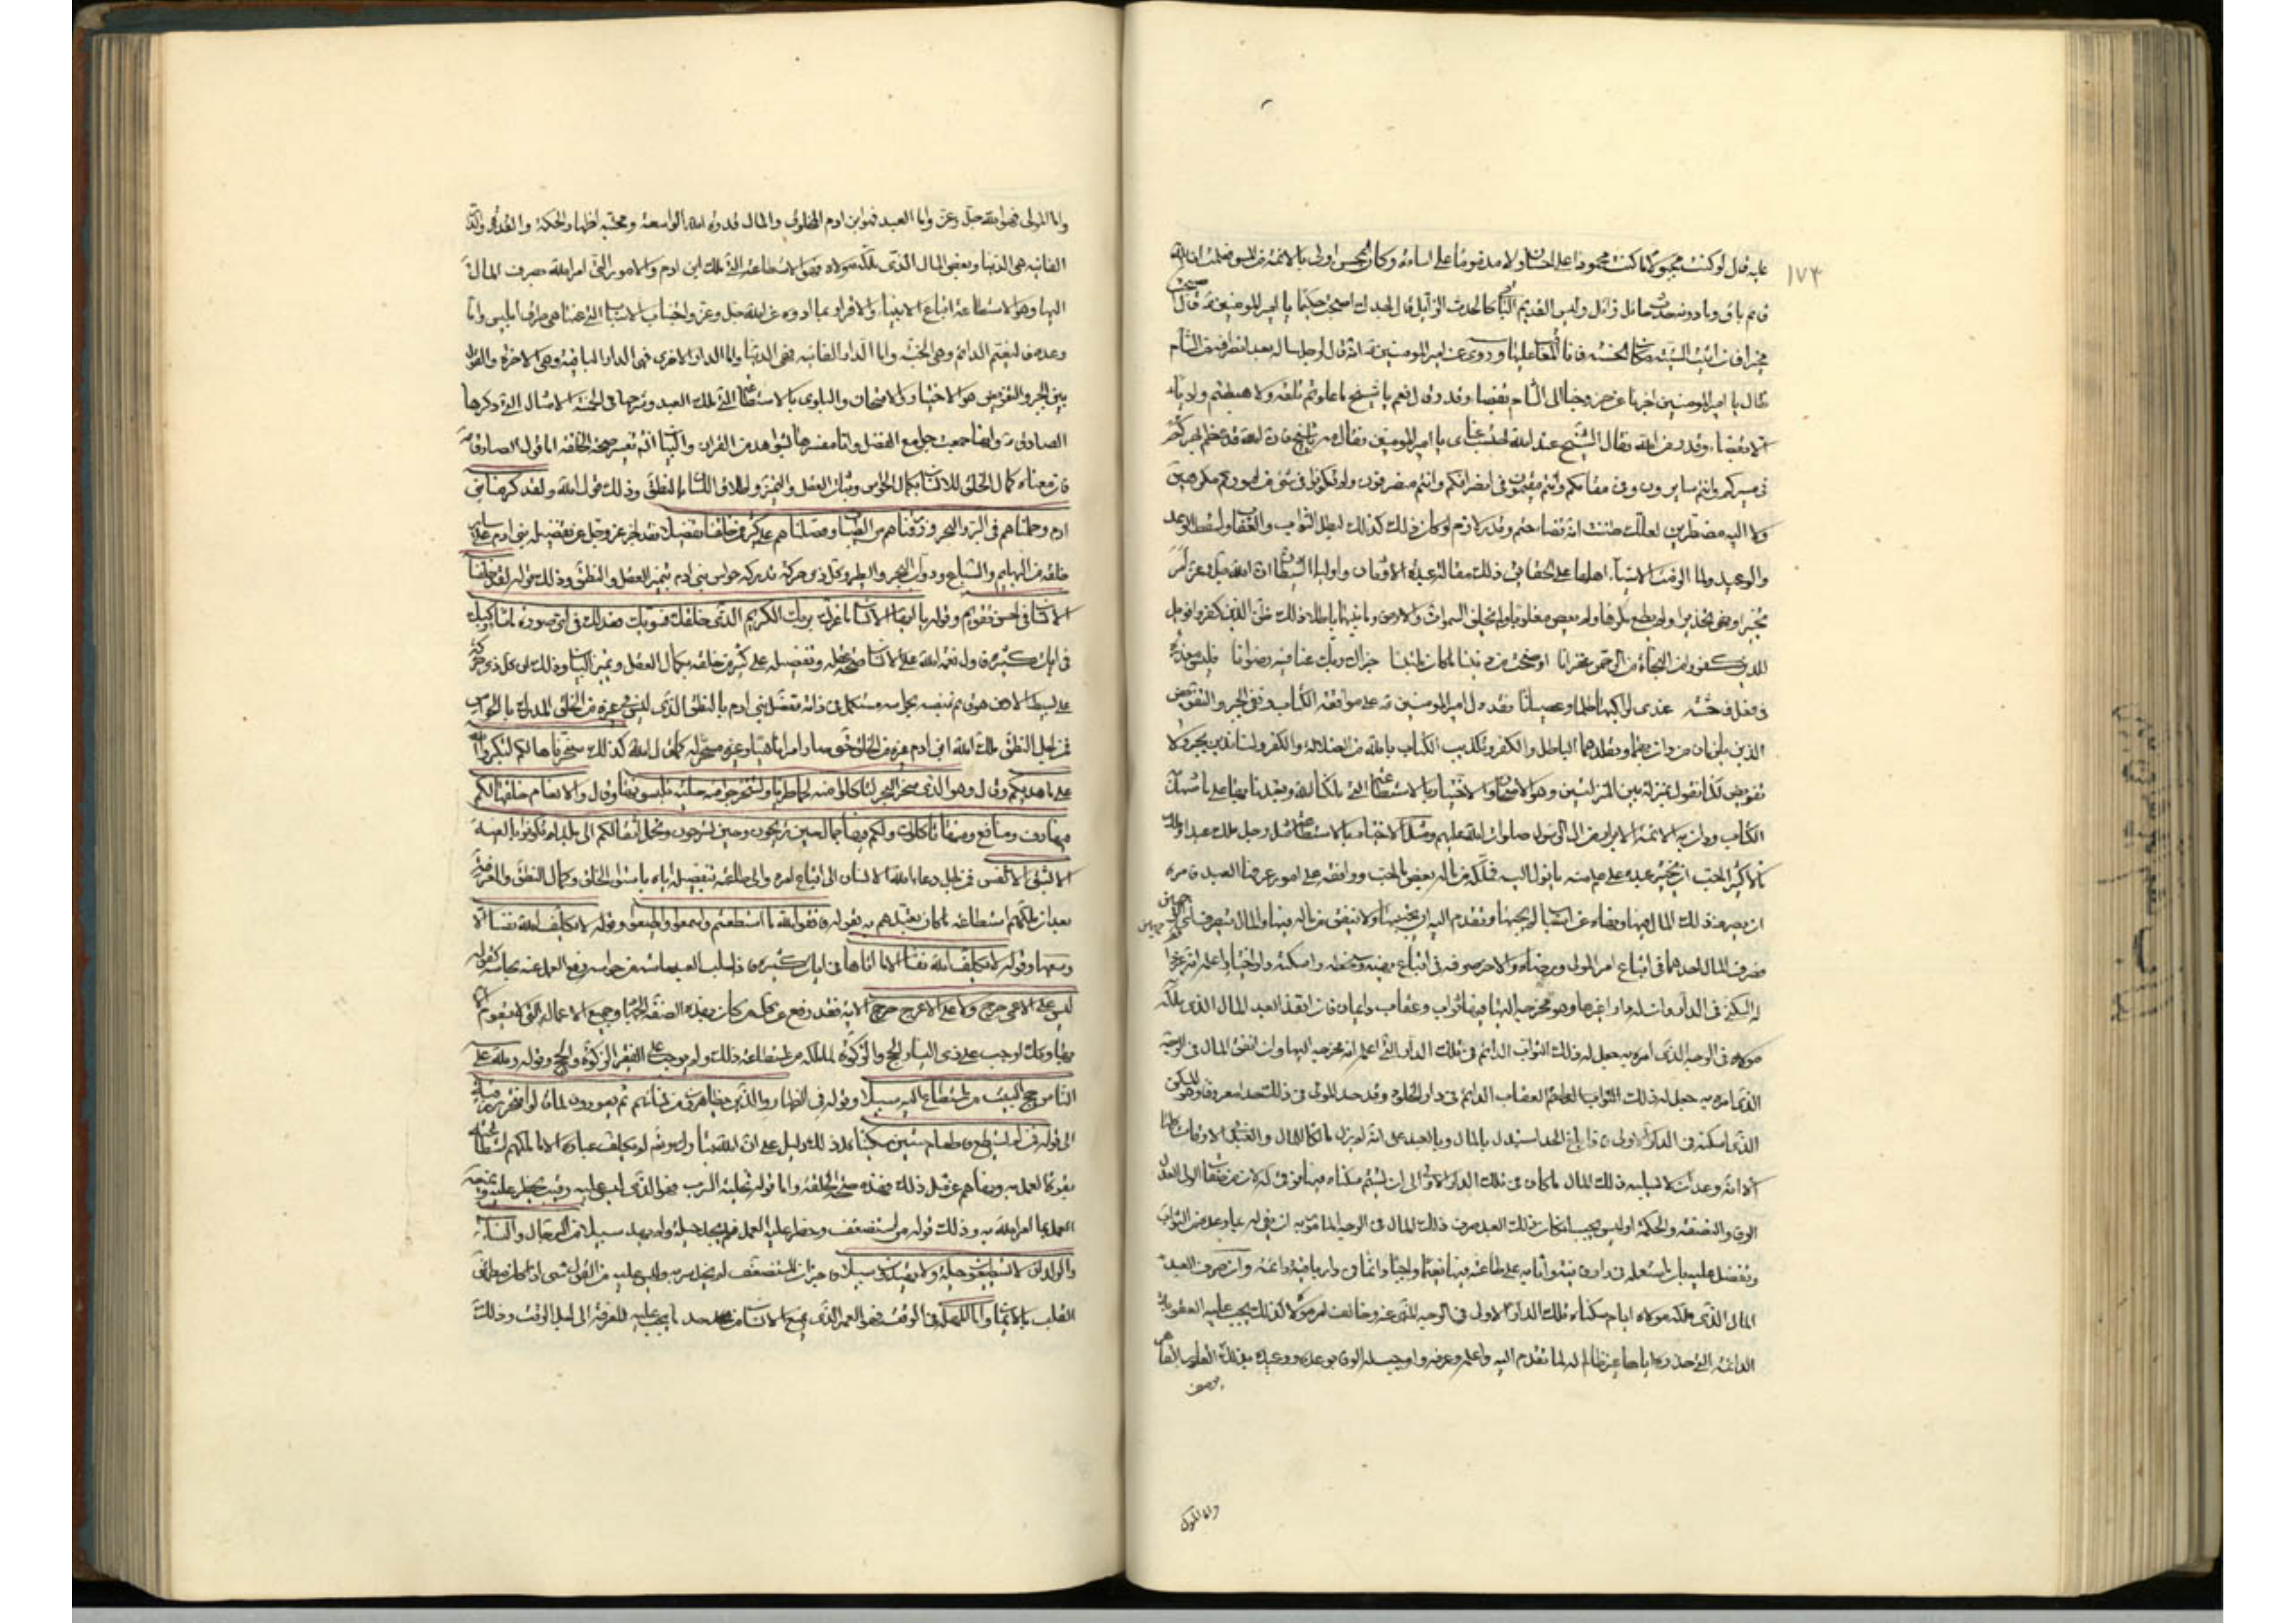 ١٧٣
عليه فقال لو كنت مجبورا ما كنت محمودا على احسان ولا مذموما على اساءة وكان المحسن اولى بالائمة من المسيء فعلمت ان الله
قائم باق وما دونه حدث حائل زائل وليس القديم الباقي كالحدث الزائل قال الحمد لك اصبحت حكيما يا امير المؤمنين قال
مخيرا فان اتيت السيئة مكان الحسنة فانا المعاقب عليها وروى عن امير المؤمنين انه قال لرجل ساله بعد انصرافه من الشام
فقال يا امير المؤمنين اخبرنا عن خروجنا الى الشام بقضاء وقدر قال نعم يا شيخ ما علوتم تلعة ولا هبطتم واديا
الا بقضاء وقدر من الله فقال الشيخ عند الله احتسب عناى يا امير المؤمنين فقال مه يا شيخ فان الله قد عظم اجركم
فى مسيركم وانتم سايرون وفى مقامكم وانتم مقيمون وفى انصرافكم وانتم منصرفون ولم تكونوا فى شىء من اموركم مكرهين
ولا اليه مضطرين لعلك ظننت انه قضاء حتم وقدر لازم لو كان ذلك كذلك لبطل الثواب والعقاب ولسقط الوعد
والوعيد ولما الزمت الاشياء اهلها على الحقايق ذلك مقالة عبدة الاوثان واولياء الشيطان ان الله جل وعز امر
تخييرا ونهى تحذيرا ولم يطع مكرها ولم يعص مغلوبا ولم يخلق السموات والارض وما بينهما باطلا ذلك ظن الذين كفروا فويل
للذين كفروا من النار
الذين يلزمان من دان بهما وتقلدهما الباطل والكفر وتكذيب الكتاب بالله من الضلالة والكفر ولسنا ندين بجبر ولا
تفويض لكنا نقول بمنزلة بين المنزلتين وهو الامتحان والاختبار بالاستطاعة التى ملكنا الله وتعبدنا بها على ما شهد به
الكتاب ودان به الائمة الابرار من ال الرسول صلوات الله عليهم ومثل الاختبار بالاستطاعة مثل رجل ملك عبدا وملك
مالا كثيرا احب ان يختبر عبده على علم منه بما يؤل اليه فملكه من ماله بعض ما احب ووافقه على امور عرفها العبد فامره
ان يصرف ذلك المال فيها ونهاه عن اسباب لم يحبها وتقدم اليه ان يجتنبها ولا ينفق من ماله فيها والمال يتصرف
فصرف المال احدهما فى اتباع امر المولى ورضاه والاخر صرفه فى اتباع نهيه وسخطه واسكنه دار اختبار اعلمه انه غير
له السكنى فى الدار وان له دارا غيرها وهو مخرجه اليها فيها ثواب وعقاب دايمان فان انفذ العبد المال الذى ملكه
مولاه فى الوجه الذى امره به جعل له ذلك الثواب الدائم فى تلك الدار التى اعلمه انه مخرجه اليها وان انفق المال فى الوجه
الذى اسكنه فى الدار الاولى فاذا بلغ الحد استبدل بالمال وبالعبد على انه لم يزل مالكا للمال والعبد فى الاوقات كلها
الا انه وعد ان لا يسلبه ذلك المال ما كان فى تلك الدار الاولى الى ان يستتم سكناه فيها
الوفا والنصفة والحكمة اوليس يجب ان كان ذلك العبد صرف ذلك المال فى الوجه المامور به ان يفى له بما وعده من الثواب
وتفضل عليه بان استعمله فى دار فانية واثابه على طاعته فيها نعيما دائما فى دار باقية دائمة وان صرف العبد
المال الذى ملكه مولاه ايام سكناه تلك الدار الاولى فى الوجه المنهى عنه وخالف امر مولاه كذلك يجب عليه العقوبة
الدائمة التى حذره اياها غير ظالم له لما تقدم اليه واعلمه وعرفه واوجب له الوفاء بوعده ووعيده بذلك القادر القاهر
يوصف
واما المولى
واما المولى فهو الله جل وعز واما العبد فهو ابن ادم المخلوق والمال قدرة الله الواسعة ومحنته اظهار الحكمة والقدرة والدار
الفانية هى الدنيا وبعض المال الذى ملكه مولاه فهو الاستطاعة التى ملك ابن ادم والامور التى امر الله بصرف المال
اليها هو الاستطاعة لاتباع الانبياء والاقرار بما اوردوه عن الله جل وعز واجتناب الاسباب التى نهى عنها هى طرق ابليس واما
وعده فالنعيم الدائم وهى الجنة واما الدار الفانية فهى الدنيا واما الدار الاخرى فهى الدار الباقية وهى الاخرة والقول
بين الجبر والتفويض هو الاختبار والامتحان والبلوى بالاستطاعة التى ملك العبد وشرحها فى الخمسة الامثال التى ذكرها
الصادق انها جمعت جوامع الفضل وانا مفسرها بشواهد من القران والبيان ان شاء الله تفسير صحة الخلقة اما قول الصادق
فان معناه كمال الخلق للانسان بكمال الحواس وثبات العقل والتمييز واطلاق اللسان بالنطق وذلك قول الله ولقد كرمنا بنى
ادم وحملناهم فى البر والبحر ورزقناهم من الطيبات وفضلناهم على كثير ممن خلقنا تفضيلا فقد اخبر عز وجل عن تفضيله بنى ادم على ساير
خلقه من البهايم والسباع ودواب البحر والطير وكل ذى حركة تدركه حواس بنى ادم بتمييز العقل والنطق وذلك قوله لقد خلقنا
الانسان فى احسن تقويم وقوله يا ايها الانسان ما غرك بربك الكريم الذى خلقك فسويك فعدلك فى اى صورة ما شاء ركبك
فى ايات كثيرة فاول نعمة الله على الانسان صحة عقله وتفضيله على كثير من خلقه بكمال العقل وتمييز البيان وذلك ان كل ذى حركة
على بسيط الارض هو قائم بنفسه بحواسه مستكمل فى ذاته ففضل بنى ادم بالنطق الذى ليس فى غيره من الخلق المدرك بالحواس
فمن اجل النطق ملك الله ابن ادم غيره من الخلق حتى صار امرا ناهيا وغيره مسخر له كما قال الله كذلك سخرها لكم لتكبروا الله
على ما هديكم وقال وهو الذى سخر البحر لتاكلوا منه لحما طريا وتستخرجوا منه حلية تلبسونها وقال والانعام خلقها لكم
فيها دفء ومنافع ومنها تاكلون ولكم فيها جمال حين تريحون وحين تسرحون وتحمل اثقالكم الى بلد لم تكونوا بالغيه
الا بشق الانفس فمن اجل ذلك دعا الله الانسان الى اتباع امره والى طاعته بتفضيله اياه باستواء الخلق وكمال النطق والمعرفة
بعد ان ملكهم استطاعة ما كان تعبدهم به بقوله فاتقوا الله ما استطعتم واسمعوا واطيعوا وقوله لا يكلف الله نفسا الا
وسعها وقوله لا يكلف الله نفسا الا ما اتاها فى ايات كثيرة فاذا سلب العبد حاسة من حواسه رفع العمل عنه بحاسته كقوله
ليس على الاعمى حرج ولا على الاعرج حرج الاية فقد رفع عن كل من كان بهذه الصفة الجهاد وجميع الاعمال التى لا يقوم الا
بها وكذلك اوجب على ذى اليسار الحج والزكوة لما ملكه من استطاعة ذلك ولم يوجب على الفقير الزكوة والحج وقوله ولله على
الناس حج البيت من استطاع اليه سبيلا وقوله فى الظهار والذين يظاهرون من نسائهم ثم يعودون لما قالوا فتحرير رقبة
الى قوله فمن لم يستطع فاطعام ستين مسكينا كل ذلك دليل على ان الله تبارك وتعالى لم يكلف عباده الا ما ملكهم استطاعته
بقوة العمل به ونهاهم عن مثل ذلك فهذه صحة الخلقة واما قوله تخلية السرب فهو الذى ليس عليه رقيب يحظر عليه ويمنعه
العمل بما امر الله به وذلك قوله فيمن استضعف وحظر عليه العمل فلم يجد حيلة ولم يهتد سبيلا من الرجال والنساء
والولدان لا يستطيعون حيلة ولا يهتدون سبيلا فاخبر ان المستضعف لم يخل سربه وليس عليه من القول شىء اذا كان مطمئن
القلب بالايمان واما المهلة فى الوقت فهو العمر الذى يمتع الانسان من حد ما يجب عليه المعرفة الى اجل الوقت وذلك